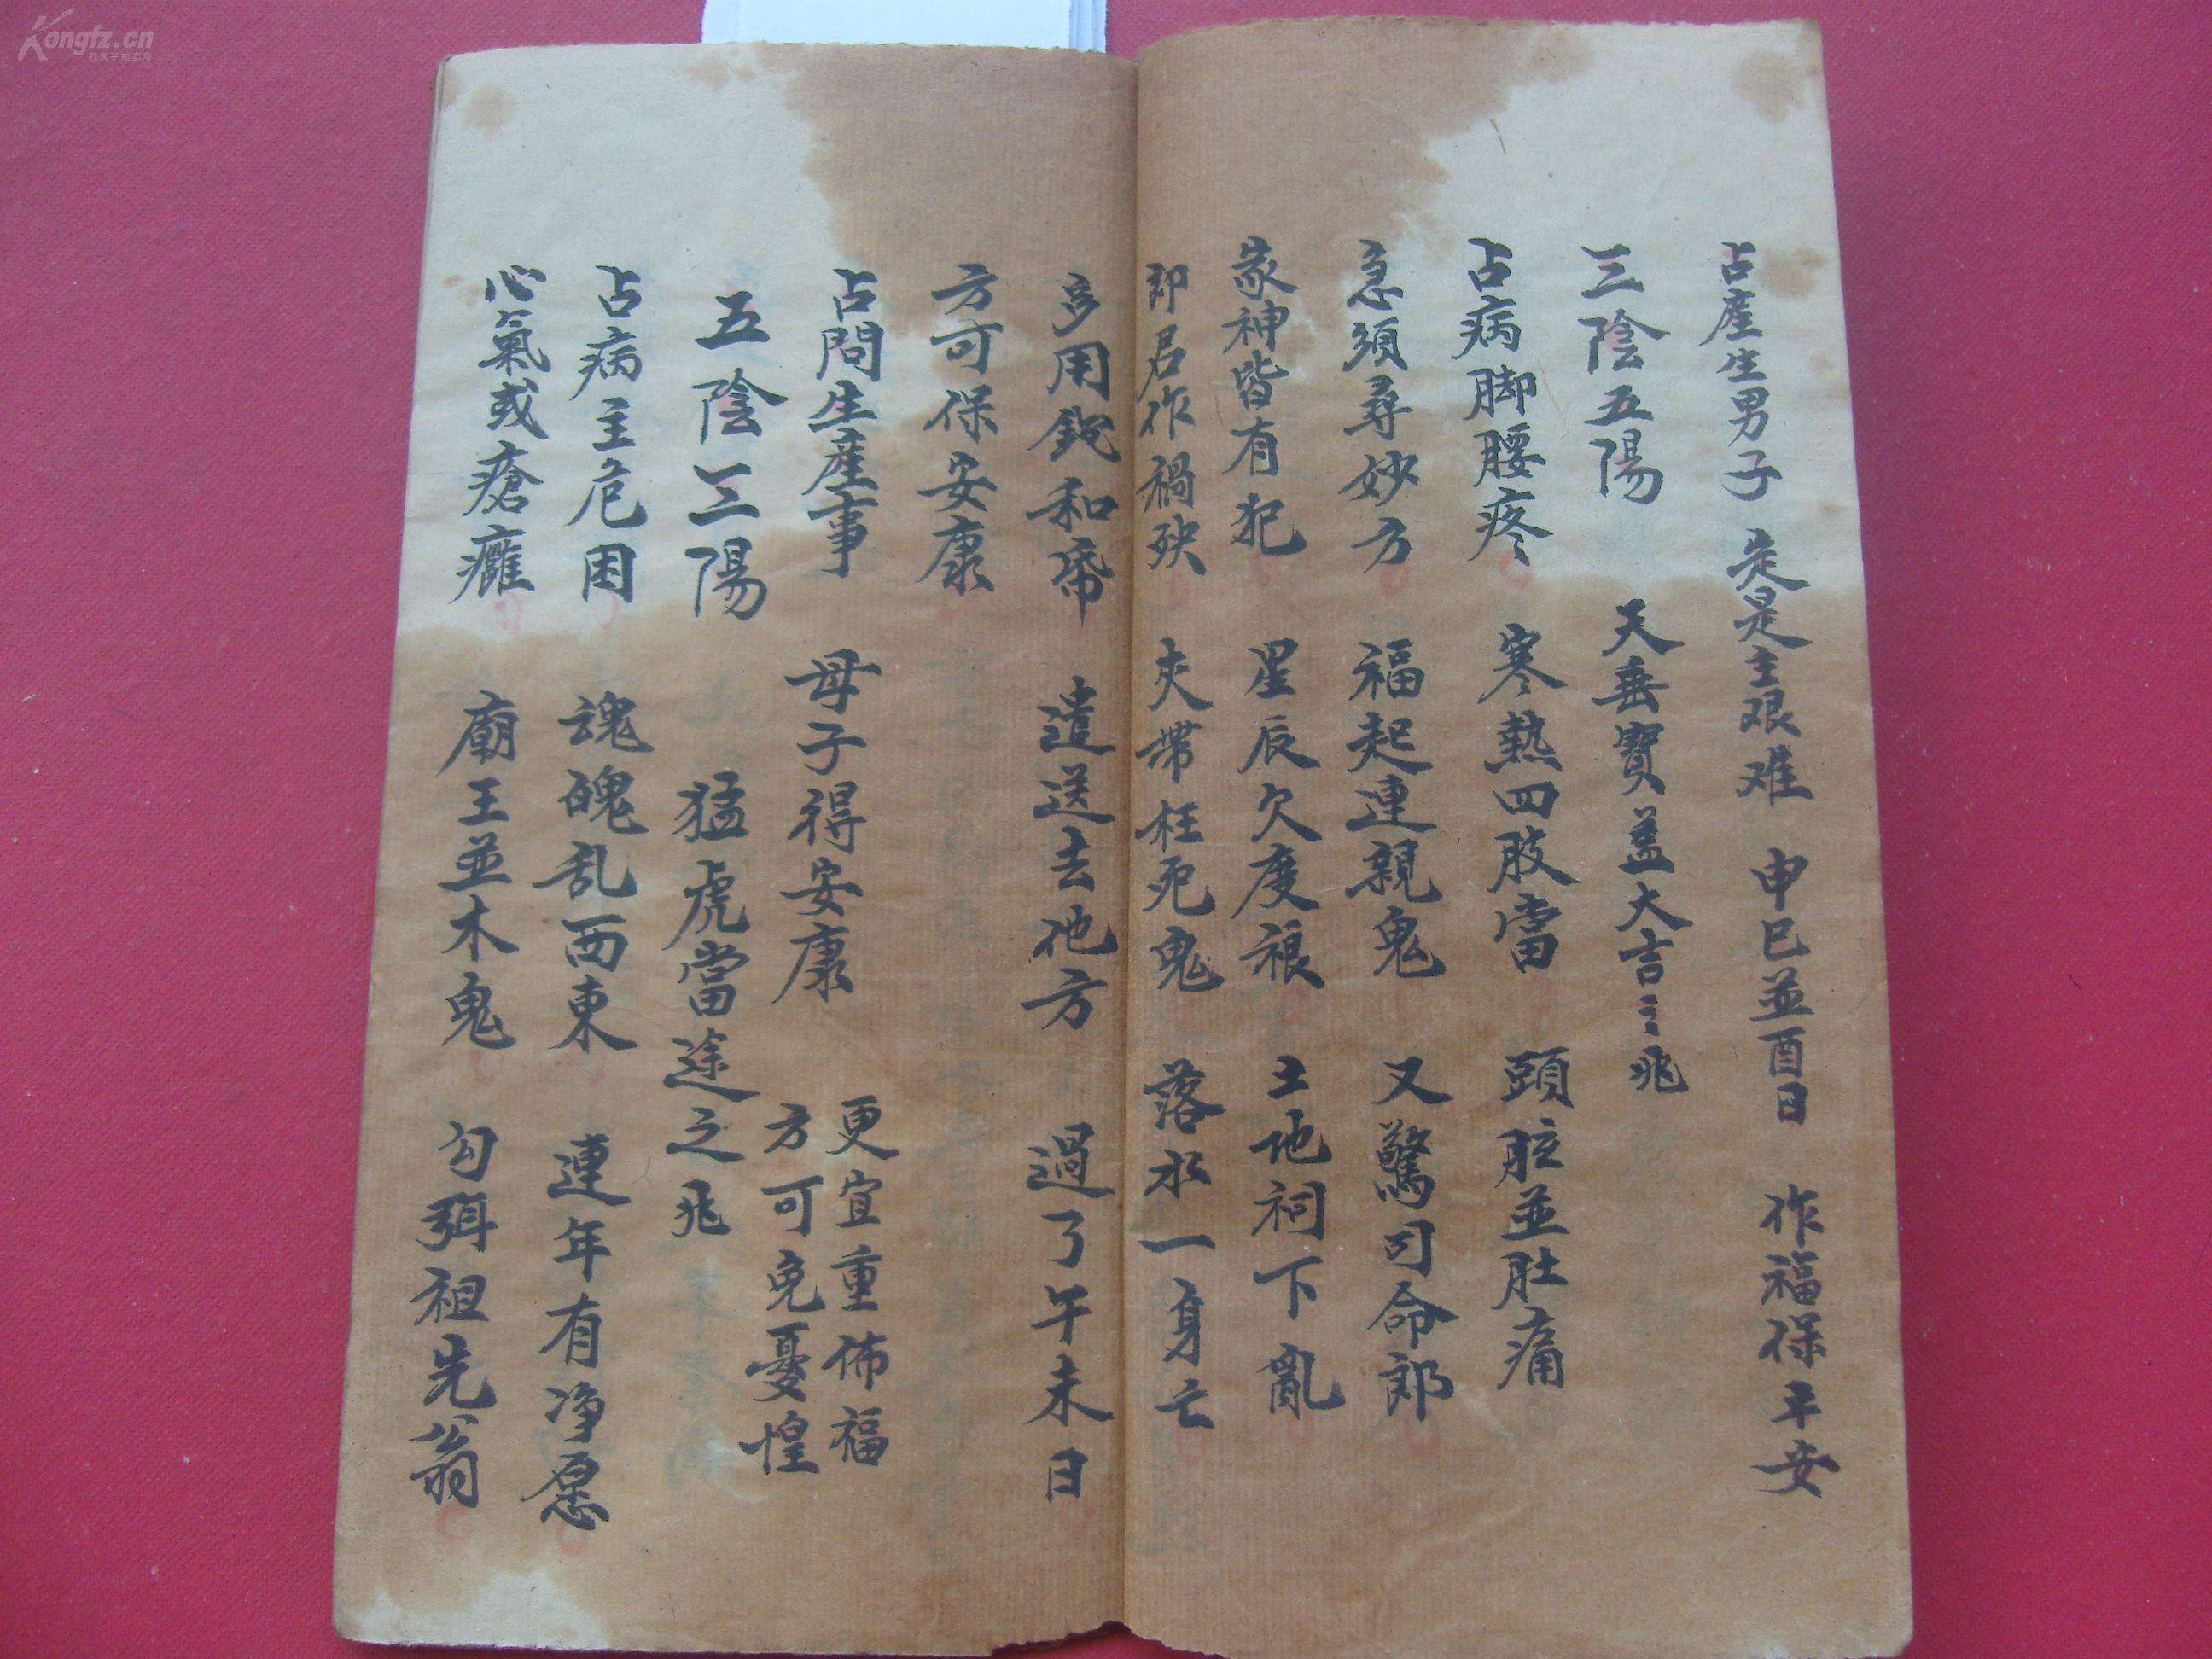 占產生男子 先是主艰难 申巳並酉日 作福保平安
三陰五陽 天垂寶盖大吉之兆
占病脚腰疼 寒熱四肢當 頭眩並肚痛
急須尋妙方 福起連親鬼 又驚司命郎
家神皆有犯 星辰欠度禳 土地祠下亂
郎君作禍殃 夾帶枉死鬼 落水一身亡
多用鈔和帋 遣送去他方 過了午未日
方可保安康
占問生產事 母子得安康 更宜重佈福
方可免憂惶
五陰三陽 猛虎當途之兆
占病主危困 魂魄乱西東 連年有净愿
心氣或瘡癱 廟王並木鬼 勾弭祖先翁
Kongfz.cn